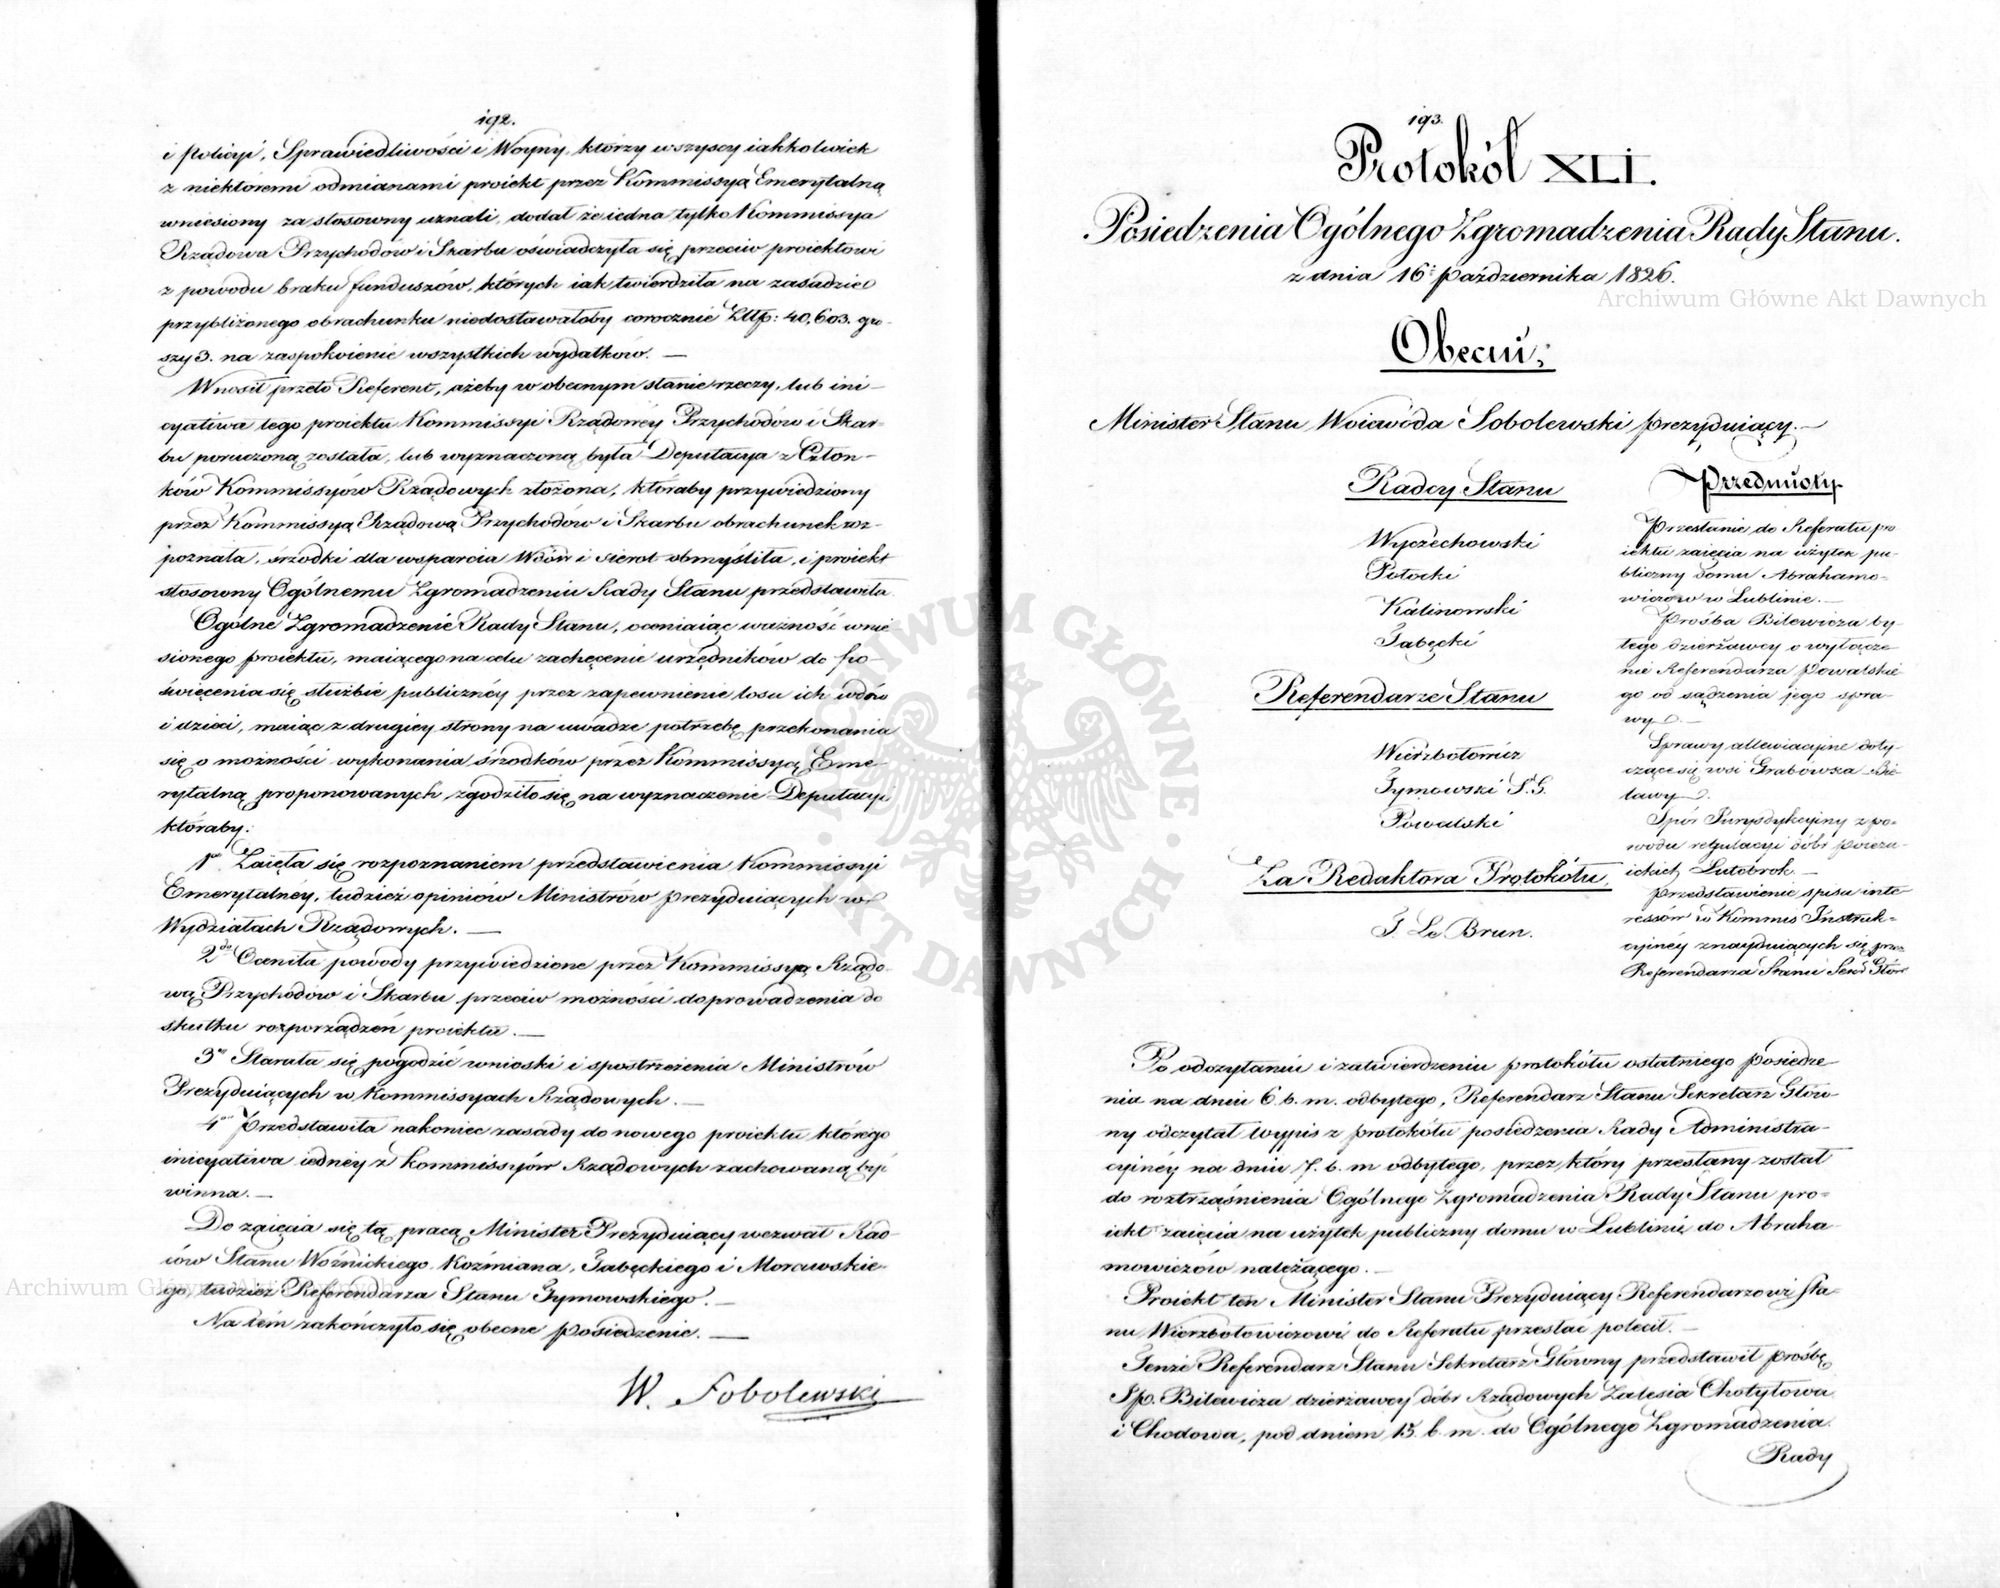 192.
i Policyi, Sprawiedliwości i Woyny, którzy wszyscy iakkolwiek
z niektóremi odmianami proiekt przez Kommissyą Emerytalną
wniesiony za stosowny uznali, dodał że iedna tylko Kommissya
Rządowa Przychodów i Skarbu oświadczyła się przeciw proiektowi
z powodu braku funduszów, których iak twierdziła na zasadzie
przybliżonego obrachunku niedostawałoby corocznie Złłp: 40,603. gro-
szy 3. na zaspokoienie wszystkich wydatków. —
Wnosił przeto Referent, ażeby w obecnym stanie rzeczy, lub ini-
cyatiwa tego proiektu Kommissyi Rządowéy Przychodów i Skar-
bu poruczoną została, lub wyznaczoną była Deputacya z Człon-
ków Kommissyów Rządowych złożona, któraby przywiedziony
przez Kommissyą Rządową Przychodów i Skarbu obrachunek roz-
poznała, środki dla wsparcia Wdów i sierot obmyśliła, i proiekt
stosowny Ogólnemu Zgromadzeniu Rady Stanu przedstawiła.
Ogólne Zgromadzenie Rady Stanu, oceniaiąc ważność wnie
sionego proiektu, maiącego na celu zachęcenie urzędników do po-
święcenia się służbie publicznéy przez zapewnienie losu ich wdów
i dzieci, maiąc z drugiey strony na uwadze potrzebę przekonania
się o możności wykonania środków przez Kommissyą Eme-
rytalną proponowanych, zgodziło się na wyznaczenie Deputacyi
któraby:
1mo Zaięła się rozpoznaniem przedstawienia Kommissyi
Emerytalney, tudzież opiniów Ministrów prezyduiących w
Wydziałach Rządowych. —
2do Oceniła powody przywiedzione przez Kommissyą Rządo-
wą Przychodów i Skarbu przeciw możności doprowadzenia do
skutku rozporządzeń proiektu. —
3o Starała się pogodzić wnioski i spostrzeżenia Ministrów
Prezyduiących w Kommissyach Rządowych. —
4o Przedstawiła nakoniec zasady do nowego proiektu którego
inicyatiwa iedney z Kommissyów Rządowych zachowaną być
winna. —
Do zaięcia się tą pracą Minister Prezyduiący wezwał Rad-
ców Stanu Woźnickiego, Koźmiana, Jabęckiego i Morawskie-
go, tudzież Referendarza Stanu Tymowskiego. —
Na tém zakończyło się obecne Posiedzenie. —
W. Sobolewski
193.
Protokół XLI.
Posiedzenia Ogólnego Zgromadzenia Rady Stanu.
z dnia 16. Października 1826.
Obecni;
Minister Stanu Woiewóda Sobolewski prezyduiący. —
Radcy Stanu
Wyczechowski
Potocki
Kalinowski
Jabęcki
Referendarze Stanu
Wierzbołowicz
Tymowski S.G.
Powalski
Za Redaktora Protokółu,
J. Le Brun.
Przedmioty
Przesłanie do Referatu pro
iektu zaięcia na użytek pu-
bliczny domu Abrahamo-
wiczów w Lublinie. —
Prośba Bilewicza by-
łego dzierżawcy o wyłącze
nie Referendarza Powalskie
go od sądzenia jego spra
wy. —
Sprawy allewiacyjne doty-
czące się wsi Grabówka Bie-
ławy.
Spór Jurysdykcyjny z po-
wodu regulacyi dóbr poiezu-
ickich Lutobrok. —
Przedstawienie spisu inte
ressów w Kommis Instruk-
cyinéy znayduiących się prze
Referendarza Stanu Sekr Głów
Po odczytaniu i zatwierdzeniu protokółu ostatniego Posiedze
nia na dniu 6. b. m. odbytego, Referendarz Stanu Sekretarz Głów
ny odczytał wypis z protokółu posiedzenia Rady Administra-
cyinéy na dniu 7. b. m odbytego, przez który przesłany został
do roztrząśnienia Ogólnego Zgromadzenia Rady Stanu pro-
iekt zaięcia na użytek publiczny domu w Lublinie do Abraha-
mowiczów należącego. —
Proiekt ten Minister Stanu Prezyduiący Referendarzowi Sta-
nu Wierzbołowiczowi do Referatu przesłać polecił. —
Tenże Referendarz Stanu Sekretarz Główny przedstawił prośbę
Sp. Bilewicza dzierżawcy dóbr Rządowych Zalesia Chotyłowa
i Chodowa, pod dniem 15. b. m. do Ogólnego Zgromadzenia
Rady
Archiwum Główne Akt Dawnych
Archiwum Główne Akt Dawnych
ARCHIWUM GŁÓWNE AKT DAWNYCH